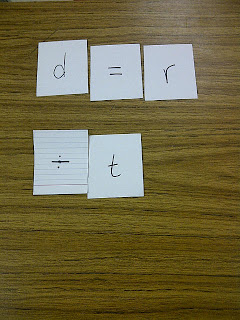 d = r
÷ t